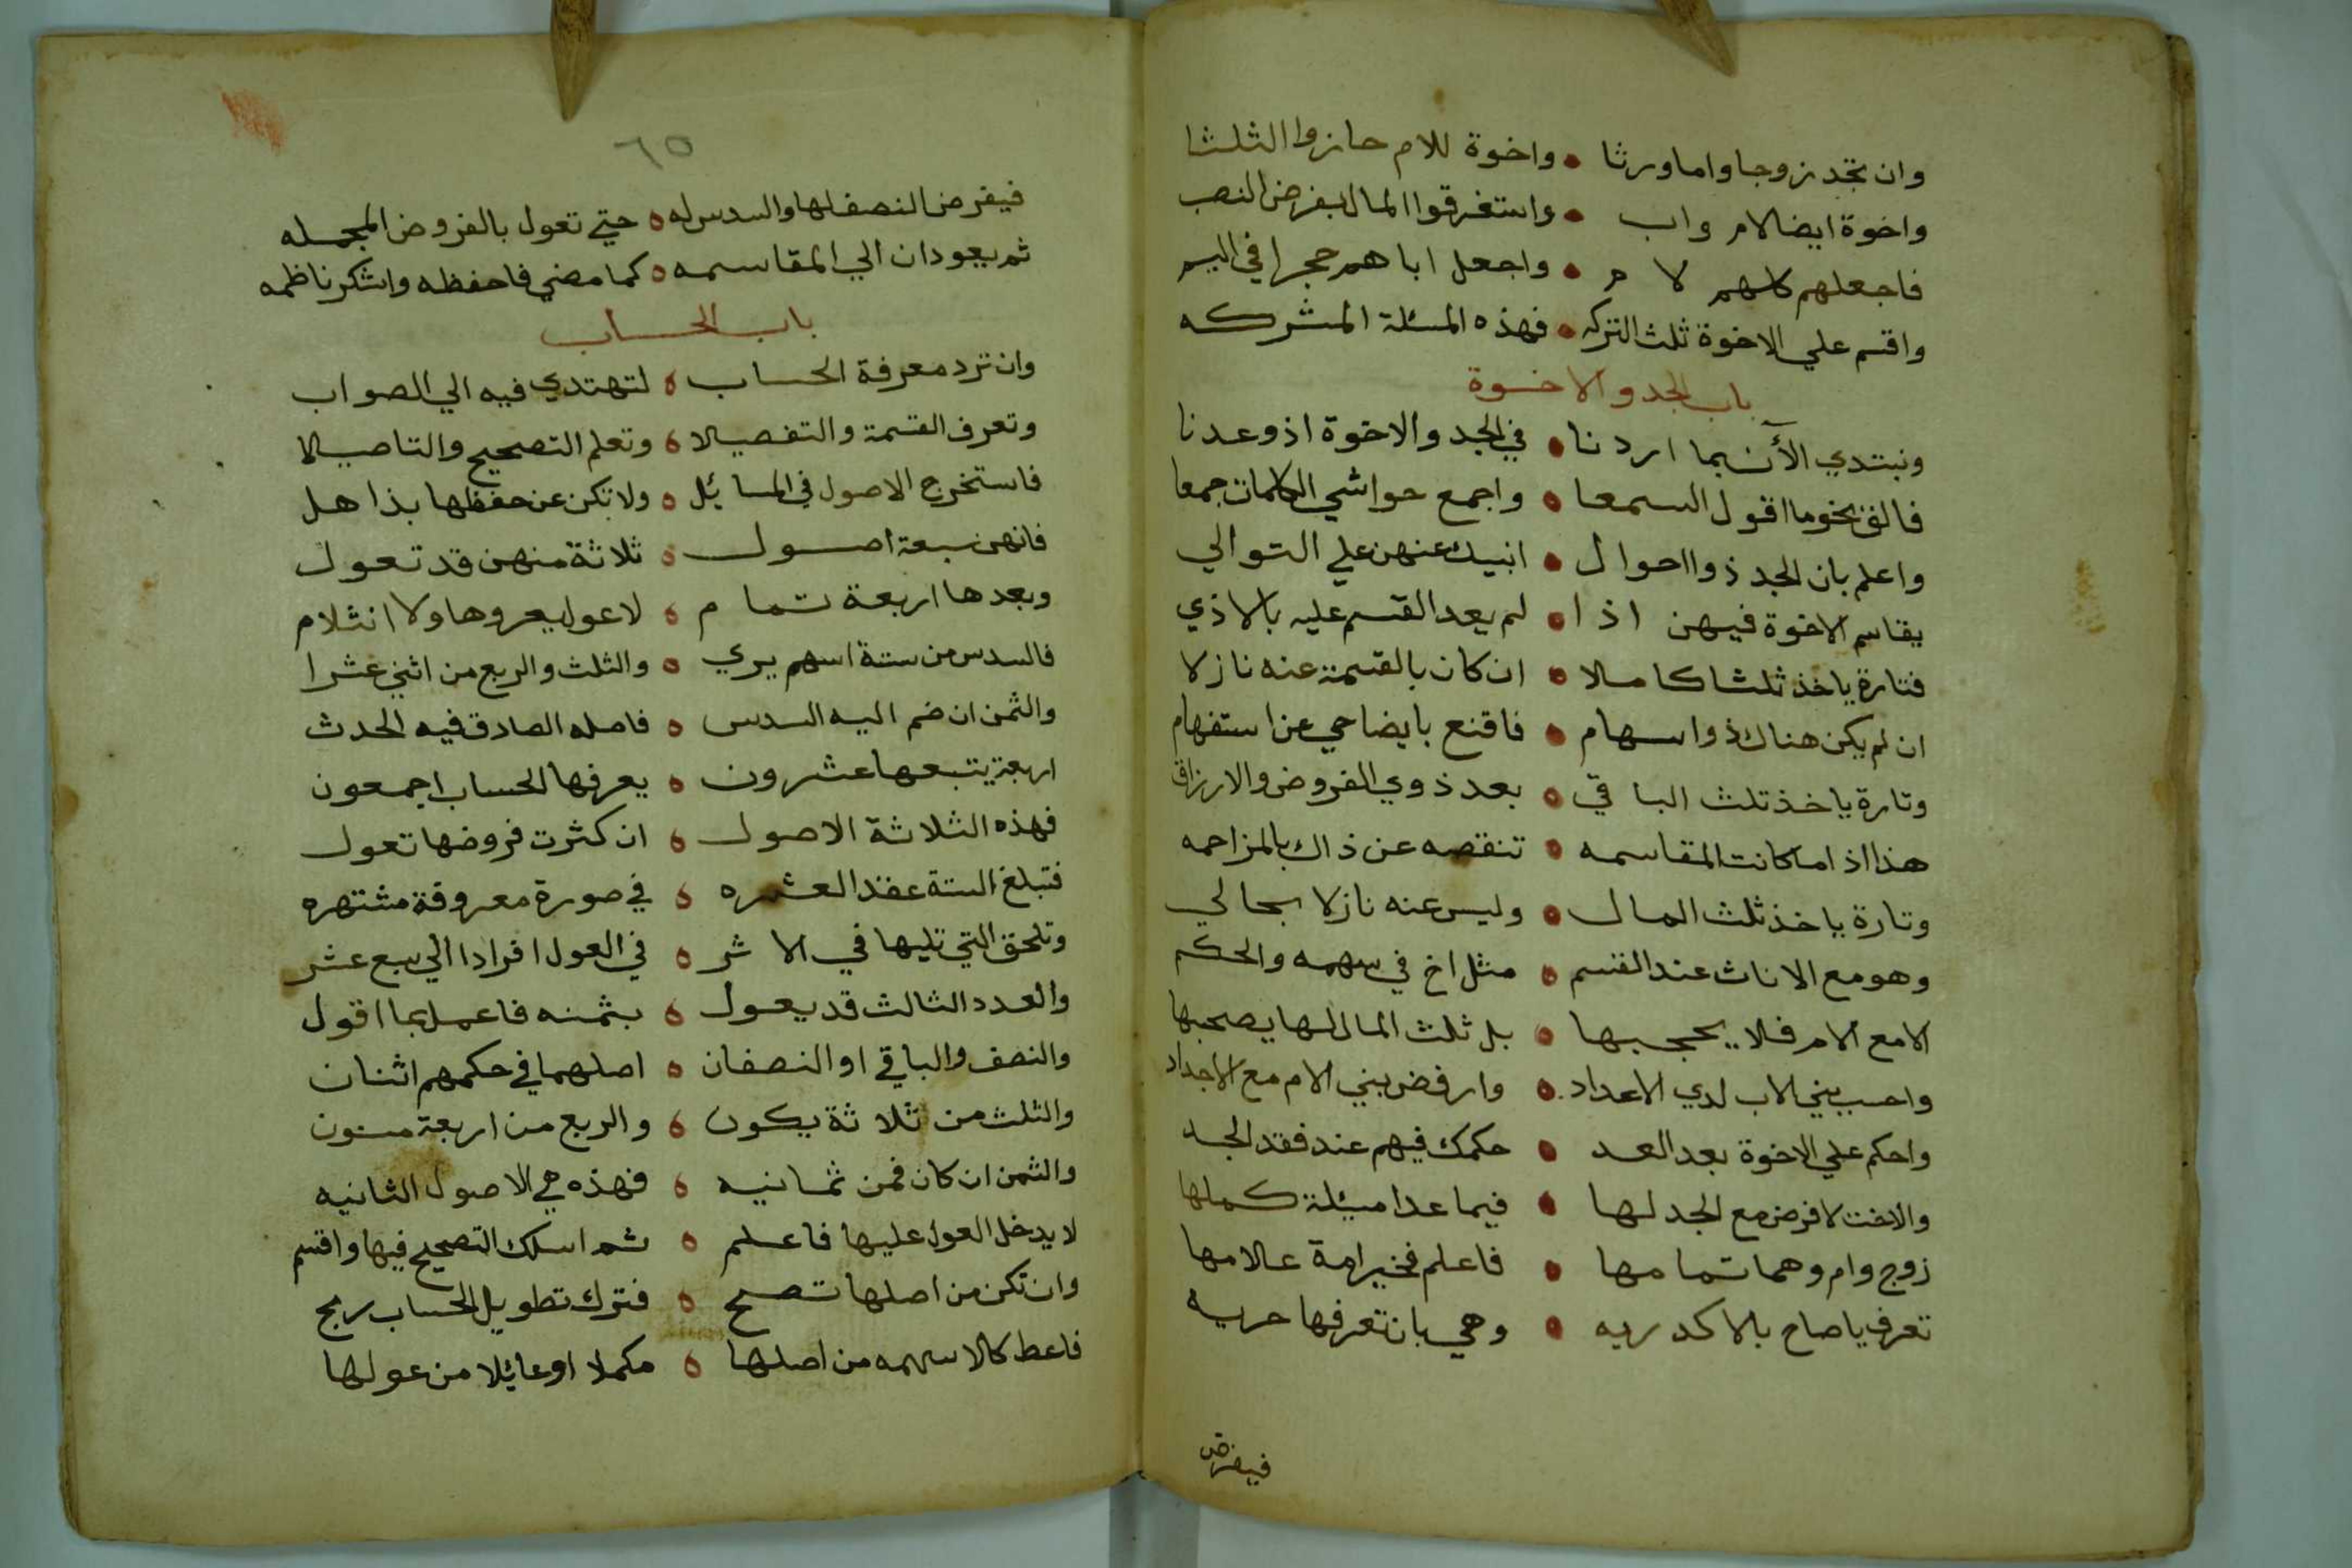 وان تجد زوجا واما ورثا • واخوة للام حازوا الثلثا
واخوة ايضا لام واب • واستغرقوا المال بفرض النصب
فاجعلهم كلهم لام • واجعل اباهم حجرا في اليم
واقسم علي الاخوة ثلث التركه • فهذه المسئلة المشركه
باب الجد والاخوة
ونبتدي الآن بما اردنا • في الجد والاخوة اذ وعدنا
فالق نحو ما اقول السمعا • واجمع حواشي الكلمات جمعا
واعلم بان الجد ذوا احوال • انبيك عنهن علي التوالي
يقاسم الاخوة فيهن اذا • لم يعد القسم عليه بالاذي
فتارة ياخذ ثلثا كاملا • ان كان بالقسمة عنه نازلا
ان لم يكن هناك ذوا سهام • فاقنع بايضاحي عن استفهام
وتارة ياخذ ثلث الباقي • بعد ذوي الفروض والارزاق
هذا اذا ما كانت المقاسمه • تنقصه عن ذاك بالمزاحمه
وتارة ياخذ ثلث المال • وليس عنه نازلا بحالي
وهو مع الاناث عند القسم • مثل اخ في سهمه والحكم
الا مع الام فلا يحجبها • بل ثلث المال لها يصحبها
واحسب بني الاب لدي الاعداد • وارفض بني الام مع الاجداد
واحكم علي الاخوة بعد العد • حكمك فيهم عند فقد الجد
والاخت لا فرض مع الجد لها • فيما عدا مسئلة كملها
زوج وام وهما تمامها • فاعلم فخير امة علامها
تعرف ياصاح بالاكدريه • وهي بان تعرفها حريه
فيفرض
٦٥
فيفرض النصف لها والسدس له • حتي تعول بالفروض المجمله
ثم يعودان الي المقاسمه • كما مضي فاحفظه واشكر ناظمه
باب الحساب
وان ترد معرفة الحساب • لتهتدي فيه الي الصواب
وتعرف القسمة والتفصيلا • وتعلم التصحيح والتاصيلا
فاستخرج الاصول في المسائل • ولا تكن عن حفظها بذاهل
فانهن سبعة اصول • ثلاثة منهن قد تعول
وبعدها اربعة تمام • لا عول يعروها ولا انثلام
فالسدس من ستة اسهم يري • والثلث والربع من اثني عشرا
والثمن ان ضم اليه السدس • فاصله الصادق فيه الحدث
اربعة يتبعها عشرون • يعرفها الحساب اجمعون
فهذه الثلاثة الاصول • ان كثرت فروضها تعول
فتبلغ الستة عقد العشره • في صورة معروفة مشتهره
وتلحق التي تليها في الاثر • في العول افرادا الي سبع عشر
والعدد الثالث قد يعول • بثمنه فاعمل بما اقول
والنصف والباقي او النصفان • اصلهما في حكمهم اثنان
والثلث من ثلاثة يكون • والربع من اربعة مسنون
والثمن ان كان فمن ثمانيه • فهذه هي الاصول الثانيه
لا يدخل العول عليها فاعلم • ثم اسلك التصحيح فيها واقسم
وان تكن من اصلها تصح • فترك تطويل الحساب ربح
فاعط كلا سهمه من اصلها • مكملا او عائلا من عولها